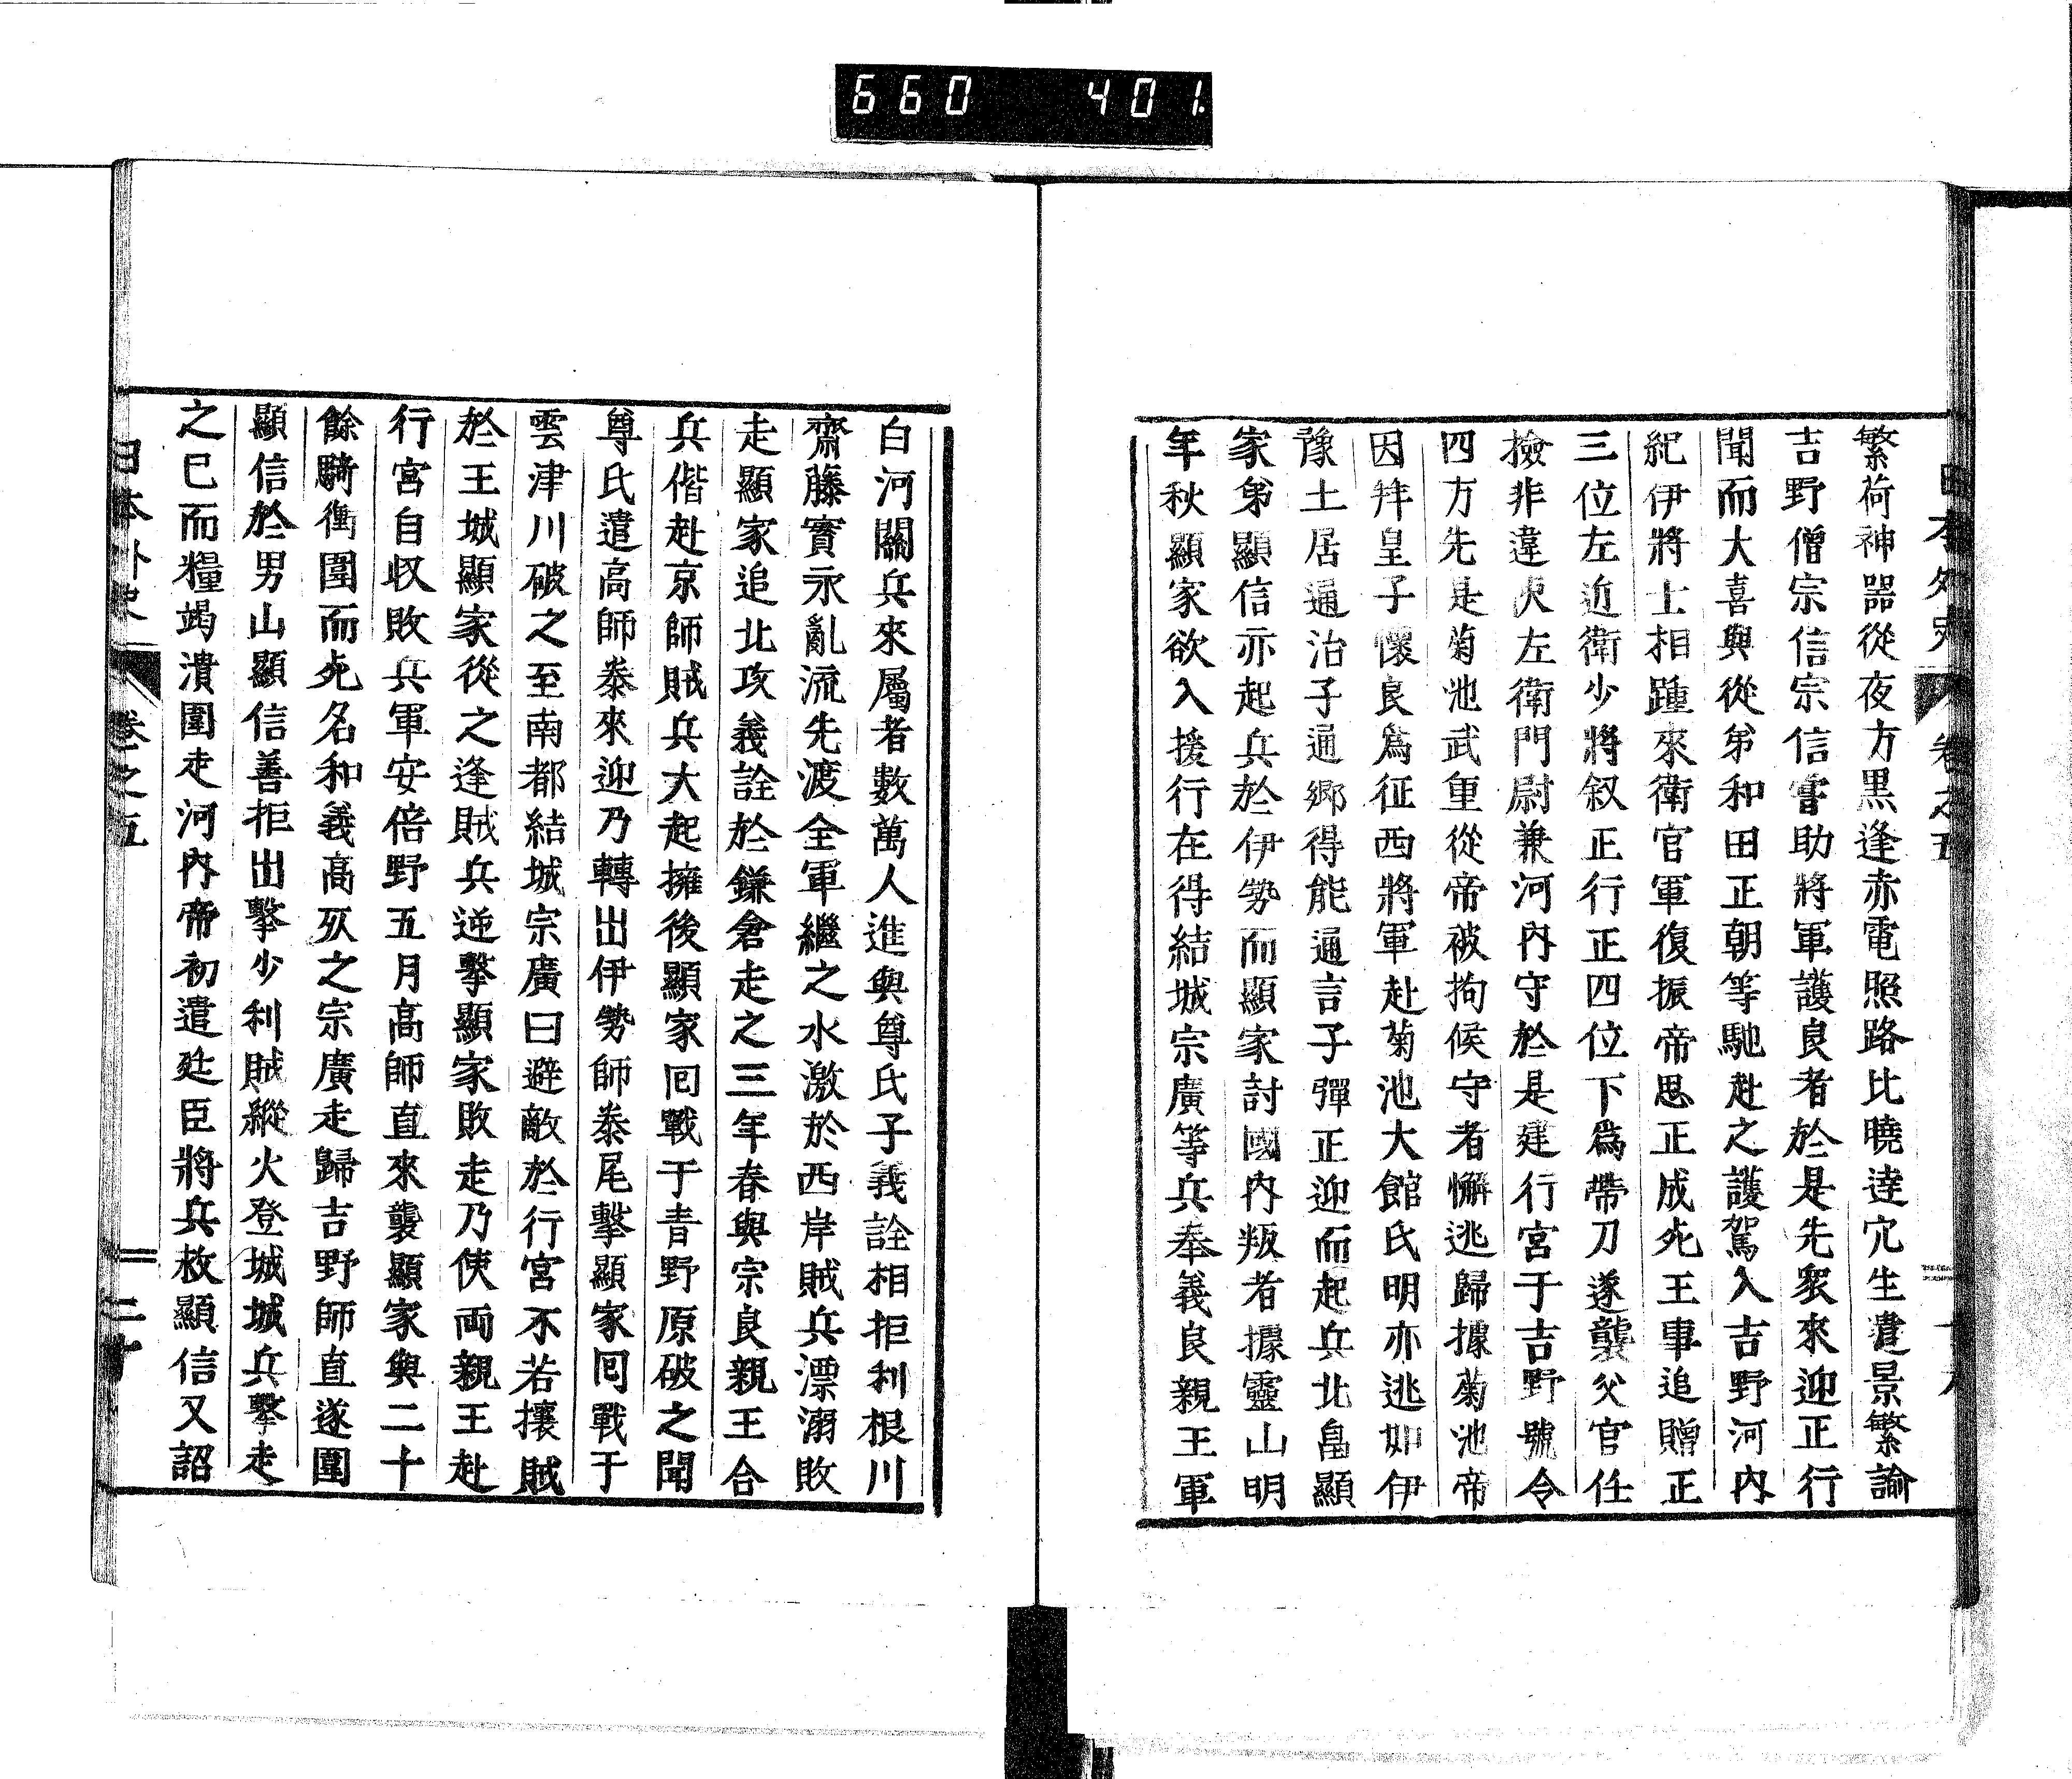 660 401
日本外史 卷之五
繁荷神器從夜方黒逢赤電照路比曉達穴生遣景繁諭
吉野僧宗信宗信嘗助將軍護良者於是先衆來迎正行
聞而大喜與從弟和田正朝等馳赴之護駕入吉野河内
紀伊將士相踵來衛官軍復振帝思正成死王事追贈正
三位左近衛少將叙正行正四位下爲帶刀遂襲父官任
撿非違使左衛門尉兼河内守於是建行宮于吉野號令
四方先是菊池武重從帝被拘候守者懈逃歸據菊池帝
因拜皇子懷良爲征西將軍赴菊池大館氏明亦逃如伊
豫土居通治子通郷得能通言子彈正迎而起兵北畠顯
家弟顯信亦起兵於伊勢而顯家討國内叛者據靈山明
年秋顯家欲入援行在得結城宗廣等兵奉義良親王軍
白河關兵來屬者數萬人進與尊氏子義詮相拒利根川
齋藤實永亂流先渡全軍繼之水激於西岸賊兵漂溺敗
走顯家追北攻義詮於鎌倉走之三年春與宗良親王合
兵偕赴京師賊兵大起擁後顯家囘戰于青野原破之聞
尊氏遣高師泰來迎乃轉出伊勢師泰尾擊顯家囘戰于
雲津川破之至南都結城宗廣曰避敵於行宮不若攘賊
於王城顯家從之逢賊兵逆擊顯家敗走乃使両親王赴
行宮自収敗兵軍安倍野五月高師直來襲顯家與二十
餘騎衝圍而死名和義高死之宗廣走歸吉野師直遂圍
顯信於男山顯信善拒出擊少利賊縱火登城城兵擊走
之已而糧竭潰圍走河内帝初遣廷臣將兵救顯信又詔
日本外史 卷之五 二十